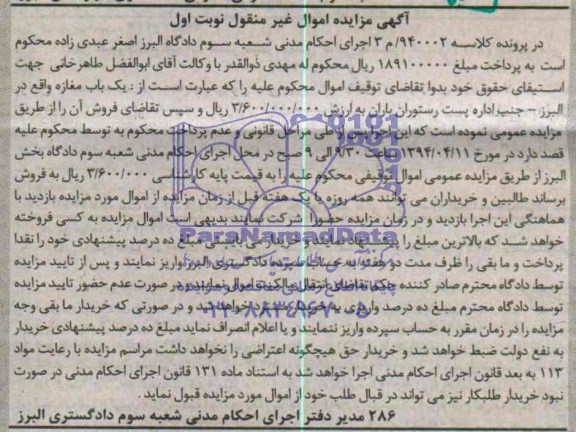 آگهی مزایده اموال غیر منقول نوبت اول
در پرونده کلاسه ۹۴۰۰۰۲/م ۳ اجرای احکام مدنی شعبه سوم دادگاه البرز اصغر عبدی زاده محکوم
است به پرداخت مبلغ ۱۸۹۱۰۰۰۰۰ ریال محکوم له مهدی ذوالقدر با وکالت آقای ابوالفضل طاهرخانی جهت
استیفای حقوق خود بدوا تقاضای توقیف اموال محکوم علیه را که عبارت است از : یک باب مغازه واقع در
البرز – جنب اداره پست رستوران باران به ارزش ۳/۶۰۰/۰۰۰/۰۰۰ ریال و سپس تقاضای فروش آن را از طریق
مزایده عمومی نموده است که این اجرا پس از طی مراحل قانونی و عدم پرداخت محکوم به توسط محکوم علیه
قصد دارد در مورخ ۱۳۹۴/۰۴/۱۱ ساعت ۹/۳۰ الی ۹ صبح در محل اجرای احکام مدنی شعبه سوم دادگاه بخش
البرز از طریق مزایده عمومی اموال توقیفی محکوم علیه را به قیمت پایه کارشناسی ۳/۶۰۰/۰۰۰ ریال به فروش
برساند طالبین و خریداران می توانند همه روزه تا یک هفته قبل از زمان مزایده از اموال مورد مزایده بازدید با
هماهنگی این اجرا بازدید و در زمان مزایده حضورا شرکت نمایند بدیهی است اموال مزایده به کسی فروخته
خواهد شد که بالاترین مبلغ را پیشنهاد نمایند و خریدار می بایستی مبلغ ده درصد پیشنهادی خود را نقدا
پرداخت و ما بقی را ظرف مدت دو هفته به حساب سپرده دادگستری البرز واریز نمایند و پس از تایید مزایده
توسط دادگاه محترم صادر کننده حکم تقاضای انتقال مالکیت اموال نمایند در صورت عدم حضور تایید مزایده
توسط دادگاه محترم مبلغ ده درصد واریزی به خریدار مسترد خواهد شد و در صورتی که خریدار ما بقی وجه
مزایده را در زمان مقرر به حساب سپرده واریز ننمایند و یا اعلام انصراف نماید مبلغ ده درصد پیشنهادی خریدار
به نفع دولت ضبط خواهد شد و خریدار حق هیچگونه اعتراضی را نخواهد داشت مراسم مزایده با رعایت مواد
۱۱۳ به بعد قانون اجرای احکام مدنی اجرا خواهد شد به استناد ماده ۱۳۱ قانون اجرای احکام مدنی در صورت
نبود خریدار طلبکار نیز می تواند در قبال طلب خود از اموال مورد مزایده قبول نماید .
۲۸۶ مدیر دفتر اجرای احکام مدنی شعبه سوم دادگستری البرز
ParaNamadData
۰۲۱-۸۸۳۴۹۶۷۰-۵